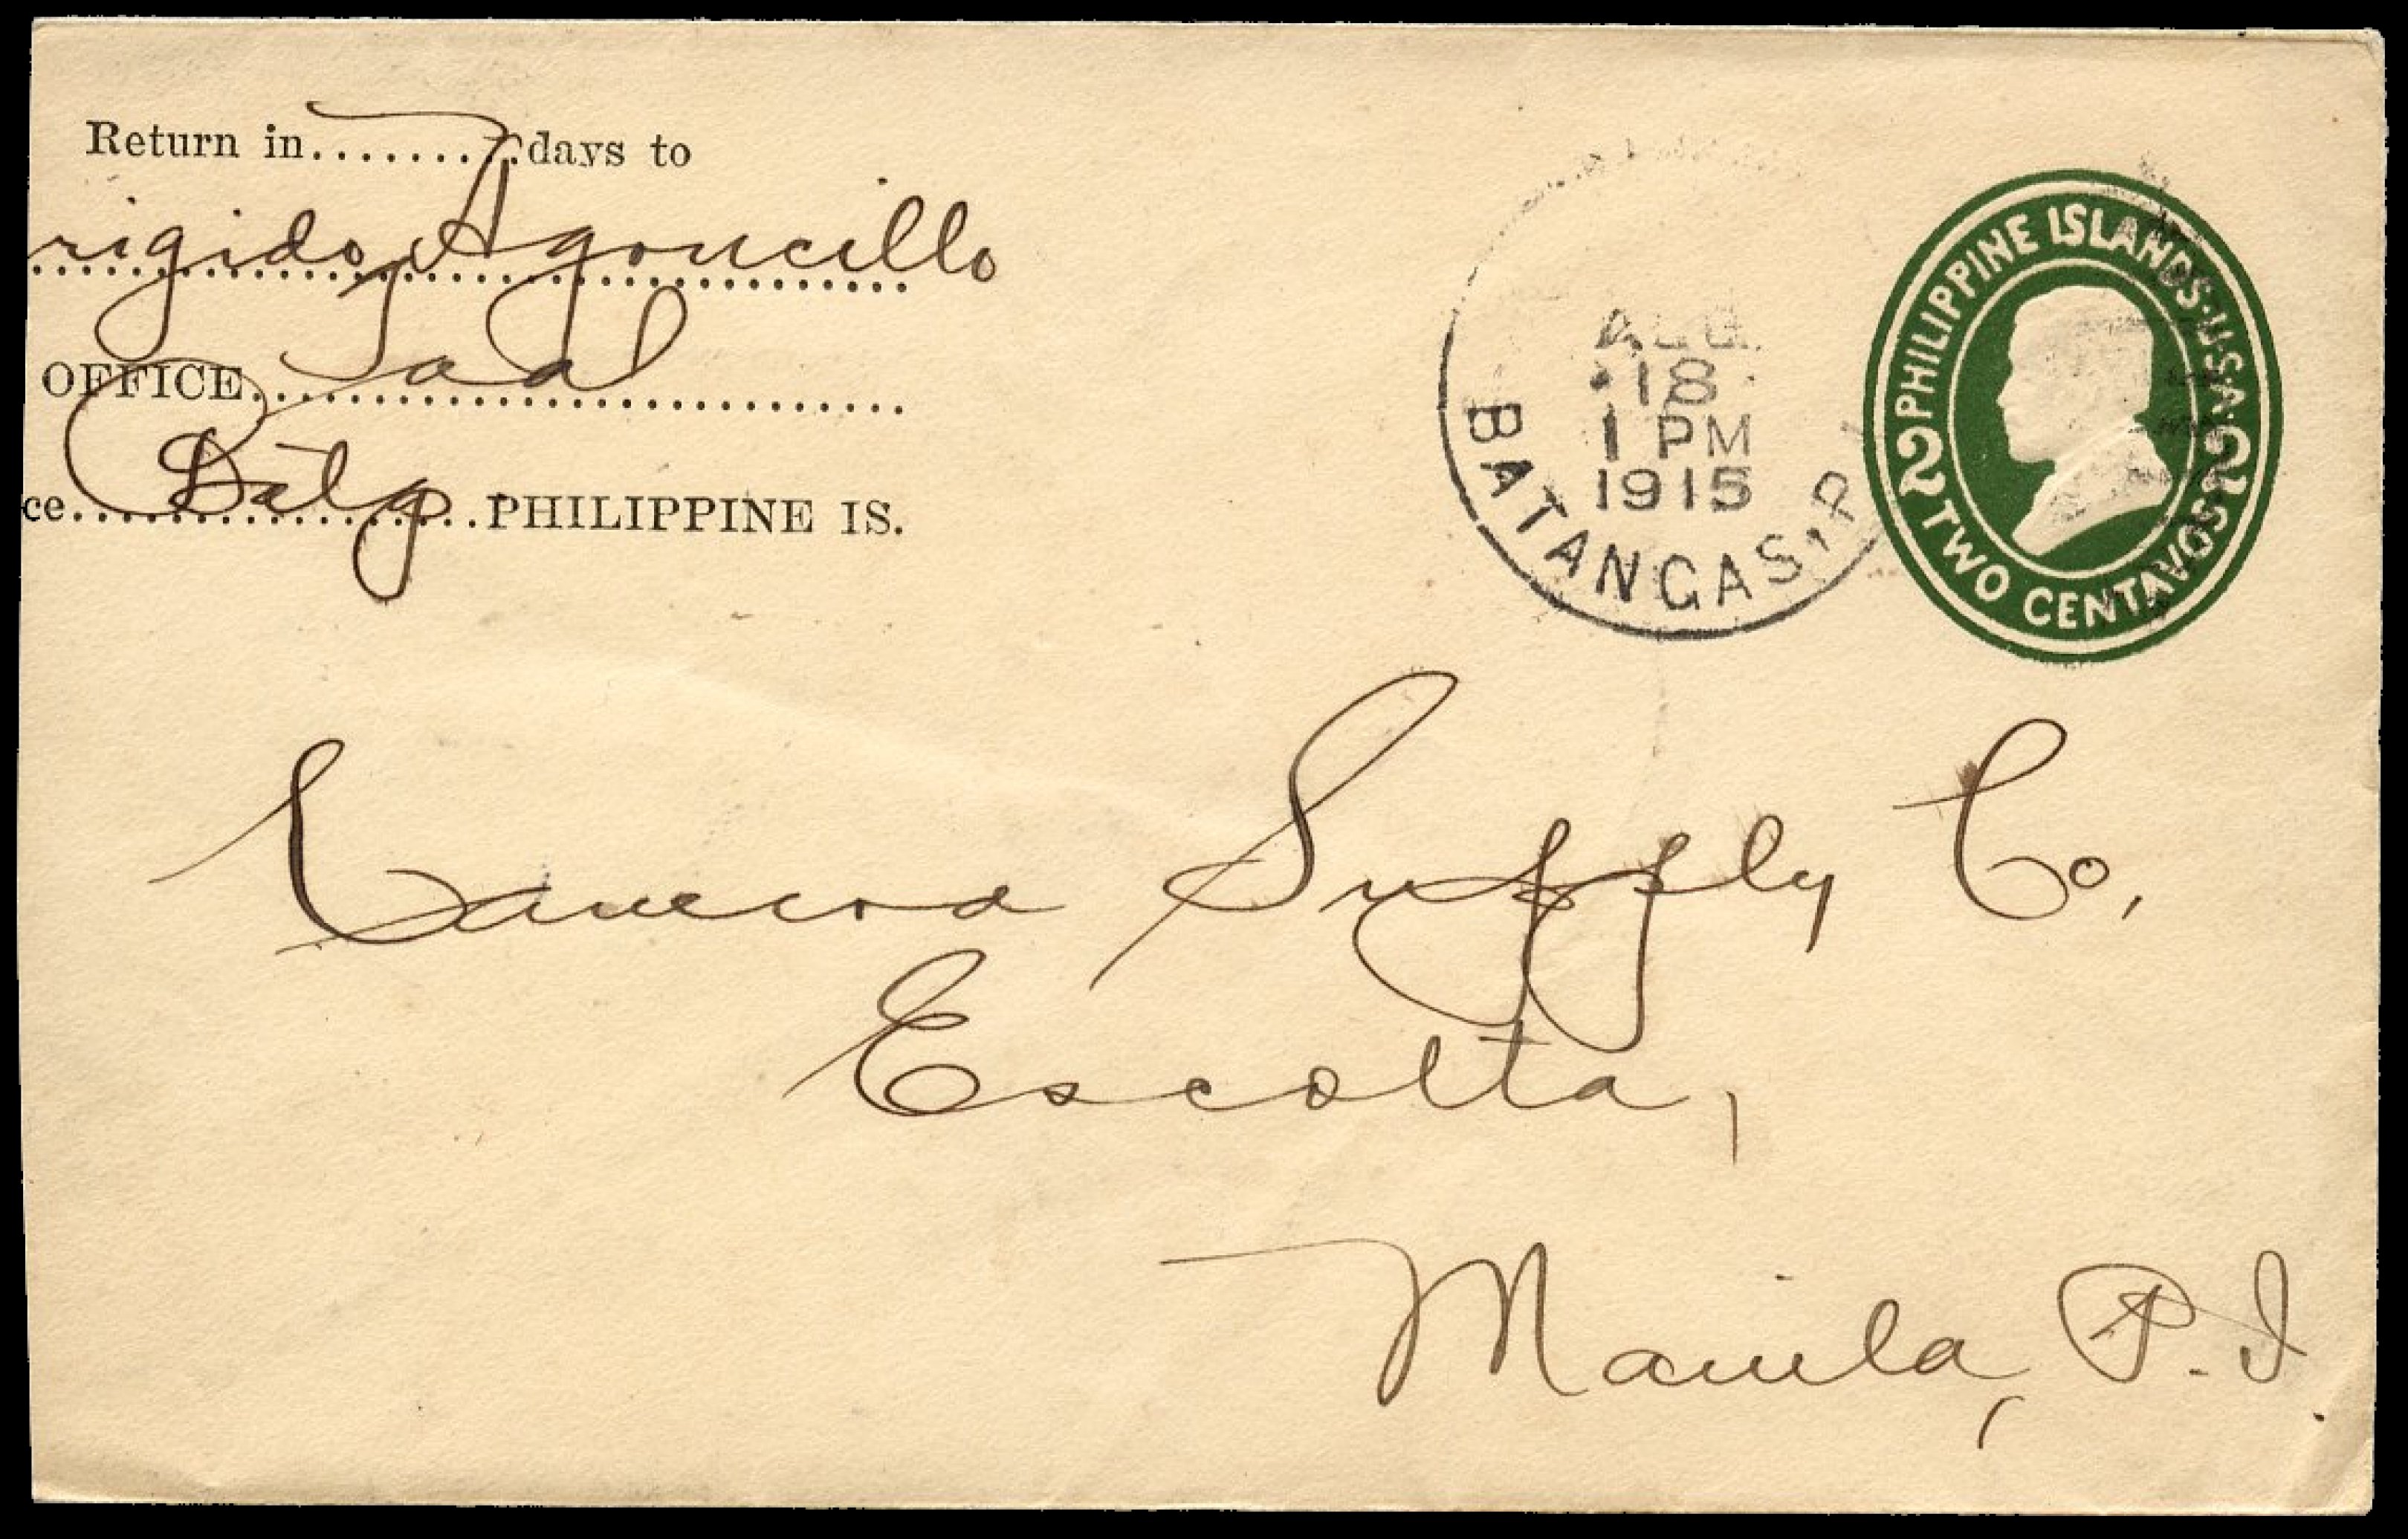 Return in 7 days to
rigido Agoncillo
OFFICE Taal
ce Batg. PHILIPPINE IS.
AUG
18
1 PM
1915
BATANGAS, P.I.
PHILIPPINE ISLANDS·U·S·A·
2 2
TWO CENTAVOS
Camera Supply Co,
Escolta,
Manila, P.I.